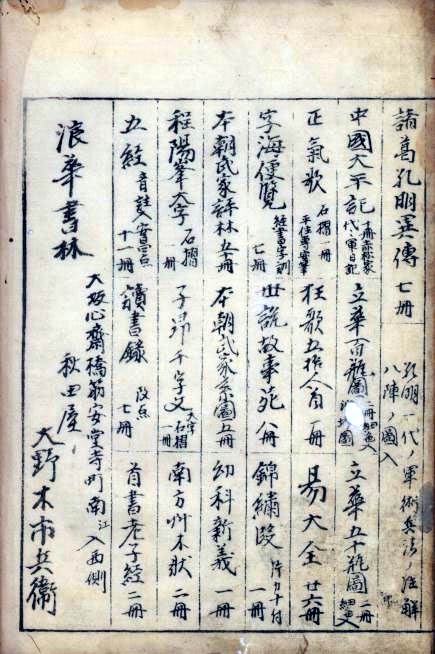 諸葛孔明異傳 七冊
孔明一代ノ軍術兵法ノ注解
八陣ノ圖入
中國太平記
代々軍日記
立華百瓶圖
立華五十瓶圖 二冊
正氣歌 石摺一冊
狂歌五拾人首 一冊
易大全 廿六冊
字海便覧 七冊
世説故事苑 八冊
錦繍段 一冊
本朝氏家評林 五十冊
本朝氏家系圖 五冊
幼科新義 一冊
程陽峯大字 石摺 一冊
子昂千字文 大字石摺 一冊
南方艸木狀 二冊
五經 音註入 十一冊
讀書録 改点 七冊
首書老子經 二冊
浪華書林
大坂心齋橋筋安堂寺町南江入西側
秋田屋
大野木市兵衞